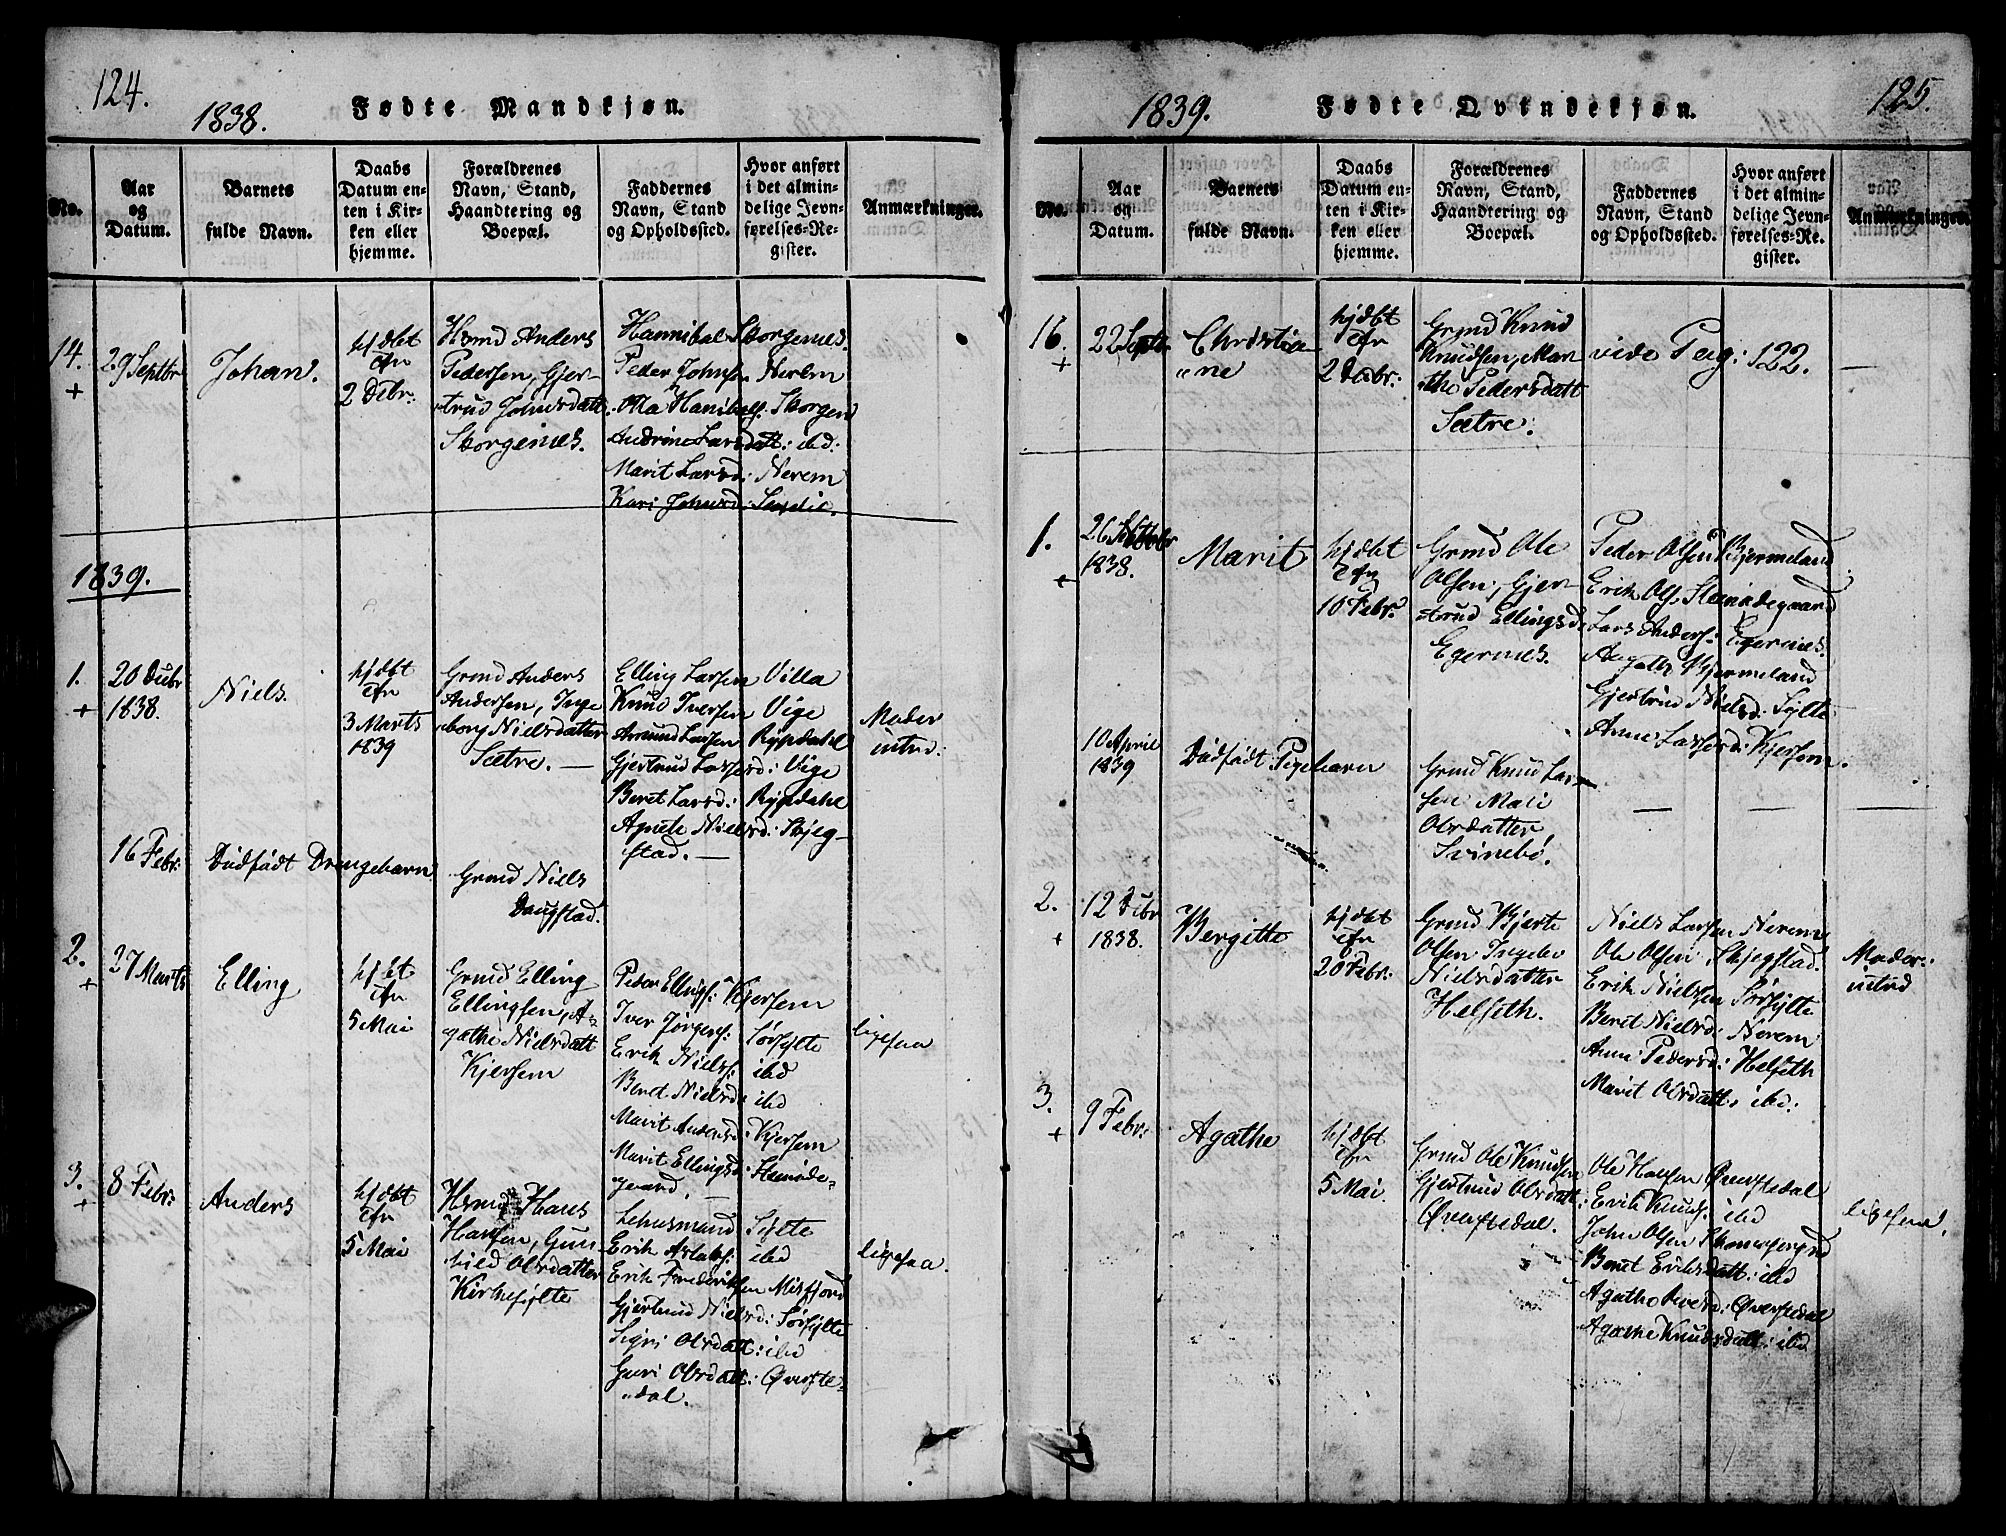 124.
1838.
Fødte Mandkjøn.
No.
Aar
og
Datum.
Barnets
fulde Navn.
Daabs
Datum en-
ten i Kir-
ken eller
hjemme.
Forældrenes
Navn, Stand,
Haandtering og
Boepæl.
Faddernes
Navn, Stand
og Opholdssted.
Hvor anført
i det almin-
delige Jevn-
førelses-Re-
gister.
Anmærkninger.
14.
+
29 Septbr
Johan.
hjdbt
cfr
2 Dcbr:
Anders
Pedersen, Gjer-
trud Johnsdatt
Skorgenes.
Hannibal Skorgenes.
Peder Johnsen Nerem
Ola Hanibals. Skorgen
Andrine Larsdatt: ibd:
Marit Larsd: Nerem
Kari Johnsd:
1839.
1.
+
20 Dcbr
1838.
Niels.
hjdbt
cfr
3 Marts
1839
Grmd Anders
Andersen, Inge
borg Nielsdatter
Sætre. —
Elling Larsen Villa
Knud Iversen Vige
Amund Larsen Rypdahl
Gjertrud Larsesd: Vige
Beret Larsd: Rypdahl
Agnete Nielsd: Skjeg-
stad. —
Moder
introd:
16 Febr:
Dødfødt Drengebarn
Grmd Niels
Daugstad.
2.
+
27 Marts
Elling
hjdbt
cfr
5 Mai
Grmd Elling
Ellingsen, A-
gathe Nielsdatt
Kjersem
Peder Ellings: Kjersem
Iver Jørgens: Sørsylte
Erik Niels: ibd
Beret Nielsd: ibd
Marit Andersd: Kjersem
Marit Ellingsd: Steinde-
gaard. —
ligesaa
3.
+
8 Febr:
Anders
hjdbt
cfr
5 Mai
Hans
Hansen, Gun-
hild Olsdatter
Kirkesylte
Lehnsmand Sylte
Erik Aslaks: ibd
Erik Frederiksen Misfjord
Gjertrud Nielsd: Sørsylte
Sigri Olsdatt: ibd
Guri Olsdatt: Øverste-
dal.
ligesaa.
125.
1839.
Fødte Qvindekjøn.
No.
Aar
og
Datum.
Barnets
fulde Navn.
Daabs
Datum en-
ten i Kir-
ken eller
hjemme.
Forældrenes
Navn, Stand,
Haandtering og
Boepæl.
Faddernes
Navn, Stand
og Opholdssted.
Hvor anført
i det almin-
delige Jevn-
førelses-Re-
gister.
Anmærkninger.
16.
+
22 Septbr
Christia-
ne
hjdbt
cfr
2 Dcbr:
Grmd Knud
Knudsen, Mar
the Pedersdatt
Sætre.
vide Pag: 122.
—
1.
+
26
1838.
Marit
hjdbt
cfr
10 Febr:
Grmd Ole
Olsen, Gjer-
trud Ellingsd.
Egernes.
Peder Olsen Gjermeland
Erik Ols. Steindegaard
Lars Anders: Egernes.
Agathe Gjermeland
Gjertrud Nielsd. Sylte
Anne Larsesd: Kjersem.
10 April
1839
Dødfødt Pigebarn
Grmd Knud Lar-
sen Mari
Olsdatter
Svinebø.
— — —
2.
+
12 Dcbr
1838.
Bergitte
hjdbt
cfr
20 Febr:
Grmd Bjerte
Olsen Ingebo
Nielsdatter
Helseth.
Niels Larsen Nerem
Ole Olsen Skjegstad.
Erik Nielsen Sørsylte
Beret Nielsd: Nerem
Anne Pedersd: Helseth
Marit Olsdatt: ibd:
Moder:
introd
3.
+
9 Febr:
Agathe
hjdbt
cfr
5 Mai.
Grmd Ole Knudsen
Gjertrud Olsdatt:
Øverstedal.
Ole Hansen Øverstedal
Erik Knuds: ibd
John Olsen
Beret Eriksdatt: ibd
Agathe Iversd: Øverstedal
Agathe Knudsdatt: ibd
ligesaa.